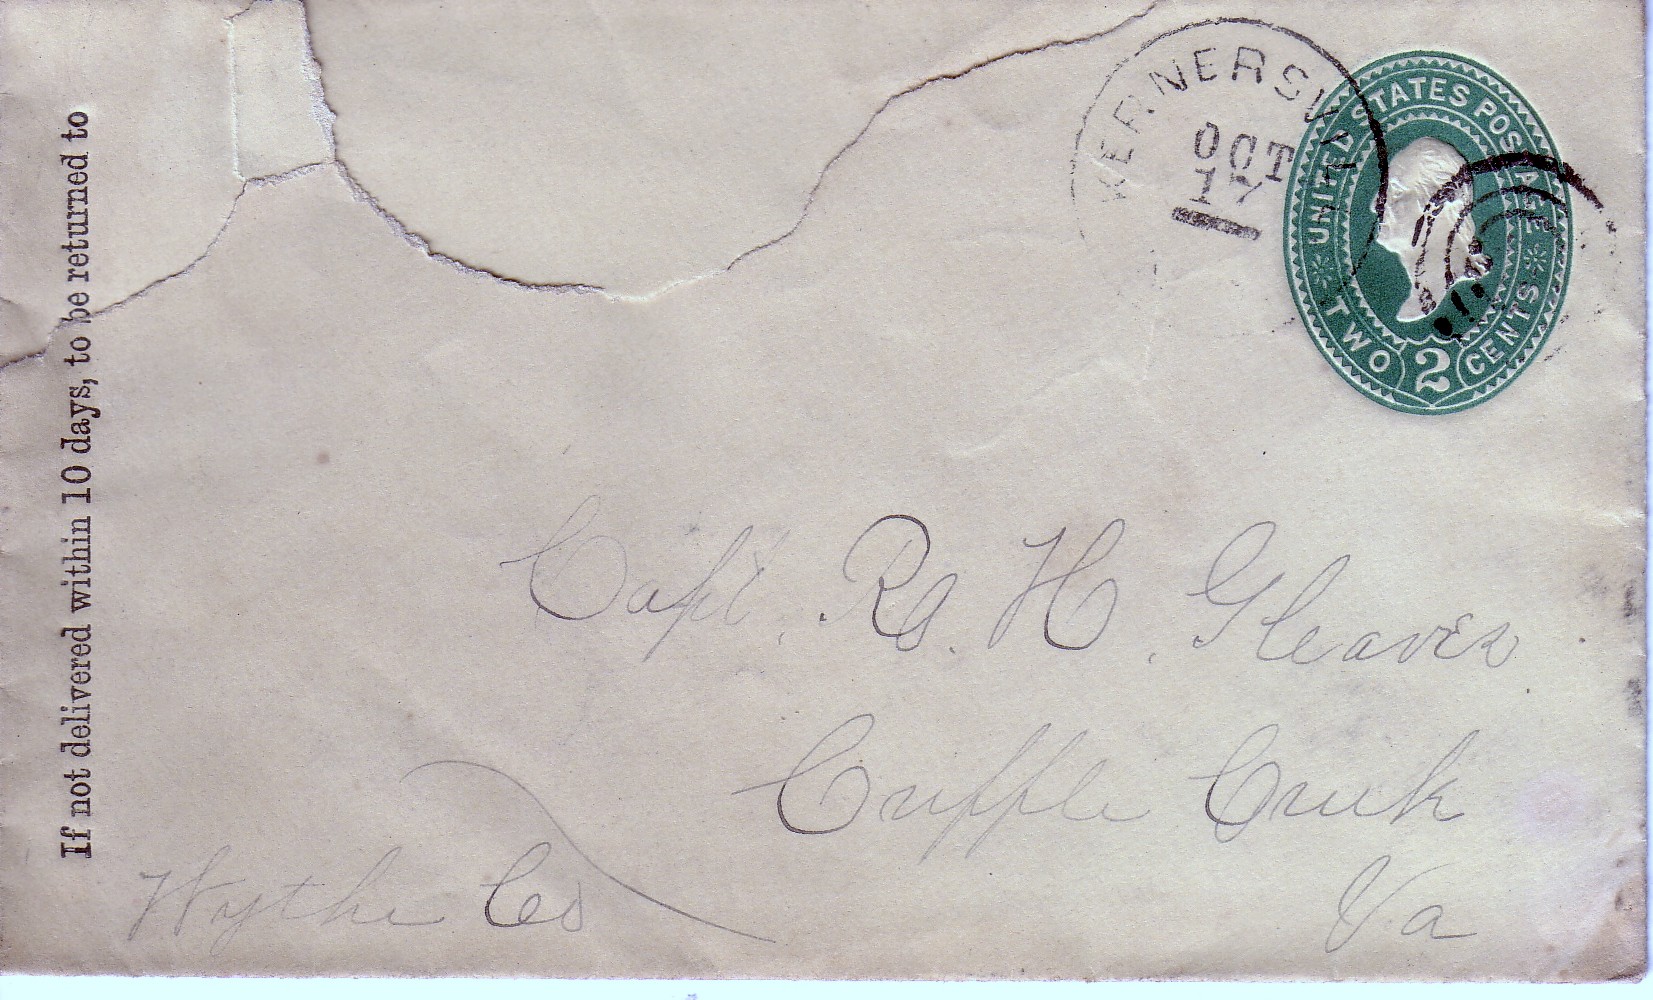 If not delivered within 10 days, to be returned to
KERNERSVI
OCT
17
UNITED STATES POSTAGE
TWO 2 CENTS
Capt. R. H. Gleaves
Cripple Creek
Wythe Co Va